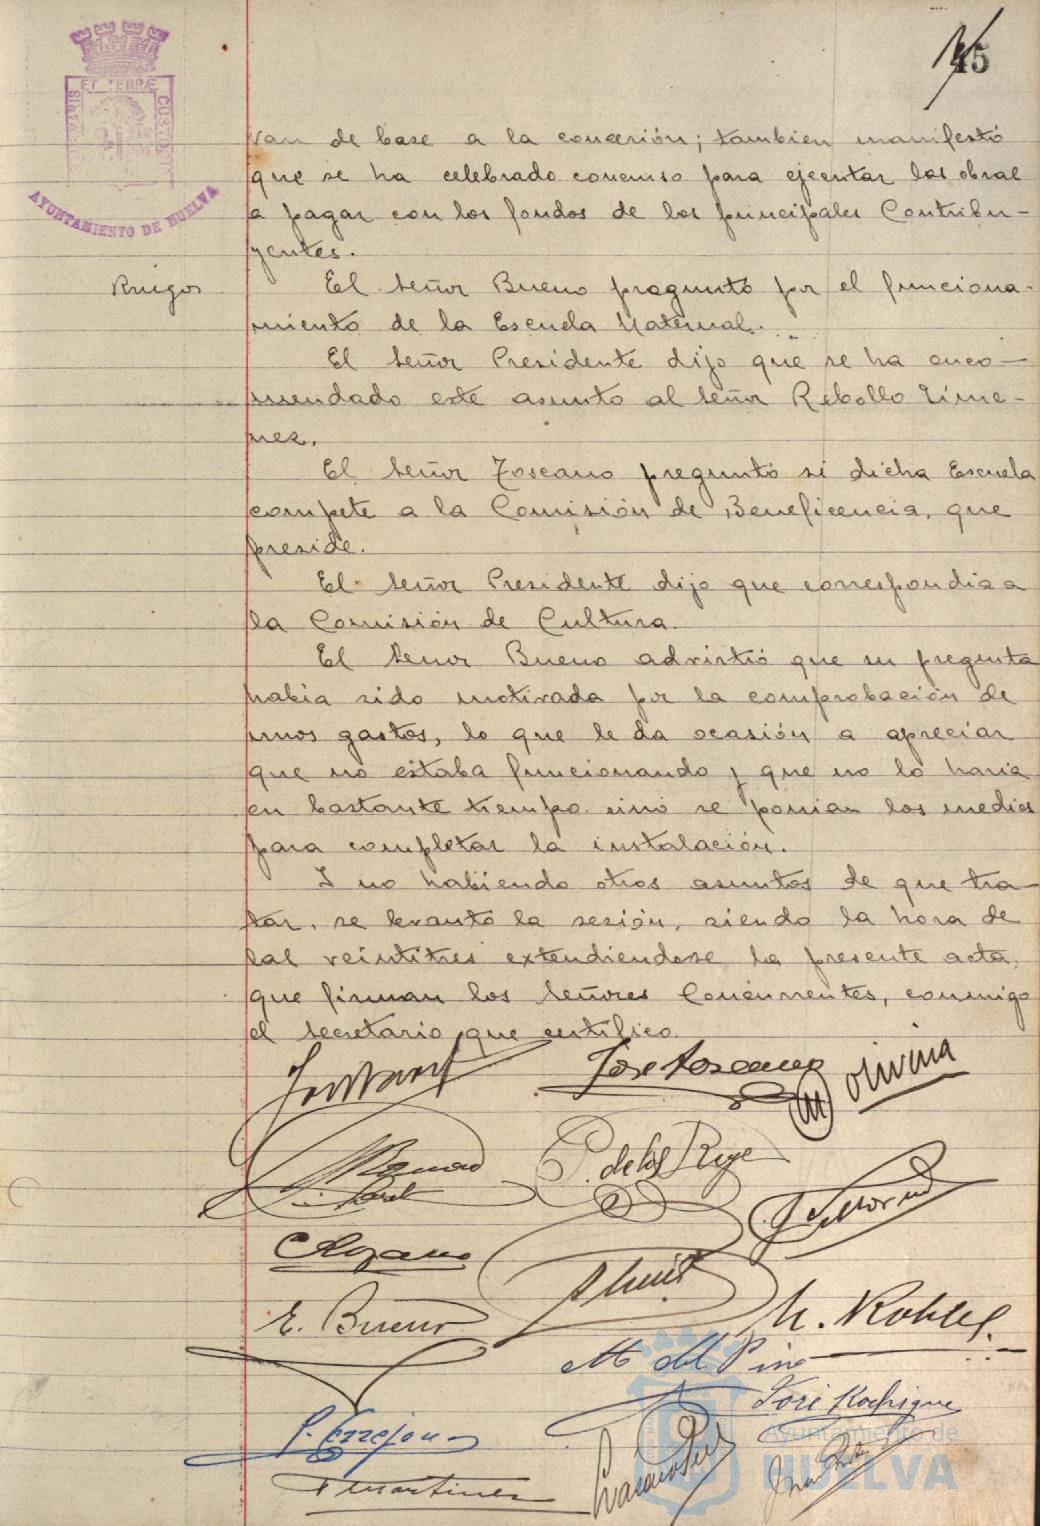 45
ET TERRÆ
AYUNTAMIENTO DE HUELVA
van de base a la concesión; tambien manifestó
que se ha celebrado concurso para ejecutar las obras
a pagar con los fondos de los principales Contribu-
yentes.
Ruegos
El señor Bueno preguntó por el funciona-
miento de la Escuela Maternal.
El señor Presidente dijo que se ha enco-
mendado este asunto al señor Rebollo Jime-
nez.
El señor Toscano preguntó si dicha Escuela
compete a la Comisión de Beneficencia, que
preside.
El señor Presidente dijo que correspondia a
la Comisión de Cultura.
El señor Bueno advirtió que su pregunta
habia sido motivada por la comprobación de
unos gastos, lo que le da ocasión a apreciar
que no estaba funcionando y que no lo haria
en bastante tiempo sinó se ponian los medios
para completar la instalación.
Y no habiendo otros asuntos de que tra-
tar, se levantó la sesión, siendo la hora de
las veintitres extendiendose la presente acta,
que firman los señores Concurrentes, conmigo
el secretario que certifico.
José Toscano
Olivina
P. de los Reye
E. Bueno
M. del Pino
José Rodrigue
P. Cerrejon
Martinez
Ayuntamiento de
HUELVA